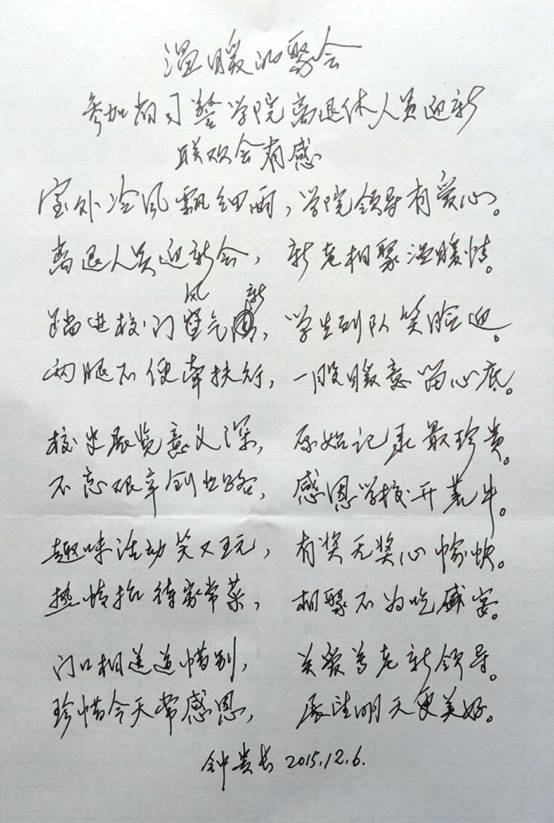 温暖的聚会
参加省司警学院离退休人员迎新
联欢会有感
室外冷风飘细雨，学院领导有爱心。
离退人员迎新会，新老相聚温暖情。
风 新
踏进校门气，学生列队笑脸迎。
两腿不便牵扶行，一股暖意留心底。
校史展览意义深，原始记录最珍贵。
不忘艰辛创业路，感恩学校开荒牛。
趣味活动笑又玩，有奖无奖心愉快。
热情招待家常菜，相聚不为吃盛宴。
门口相送道惜别，关爱尊老新领导。
珍惜今天常感恩，展望明天更美好。
钟贵长 2015.12.6.